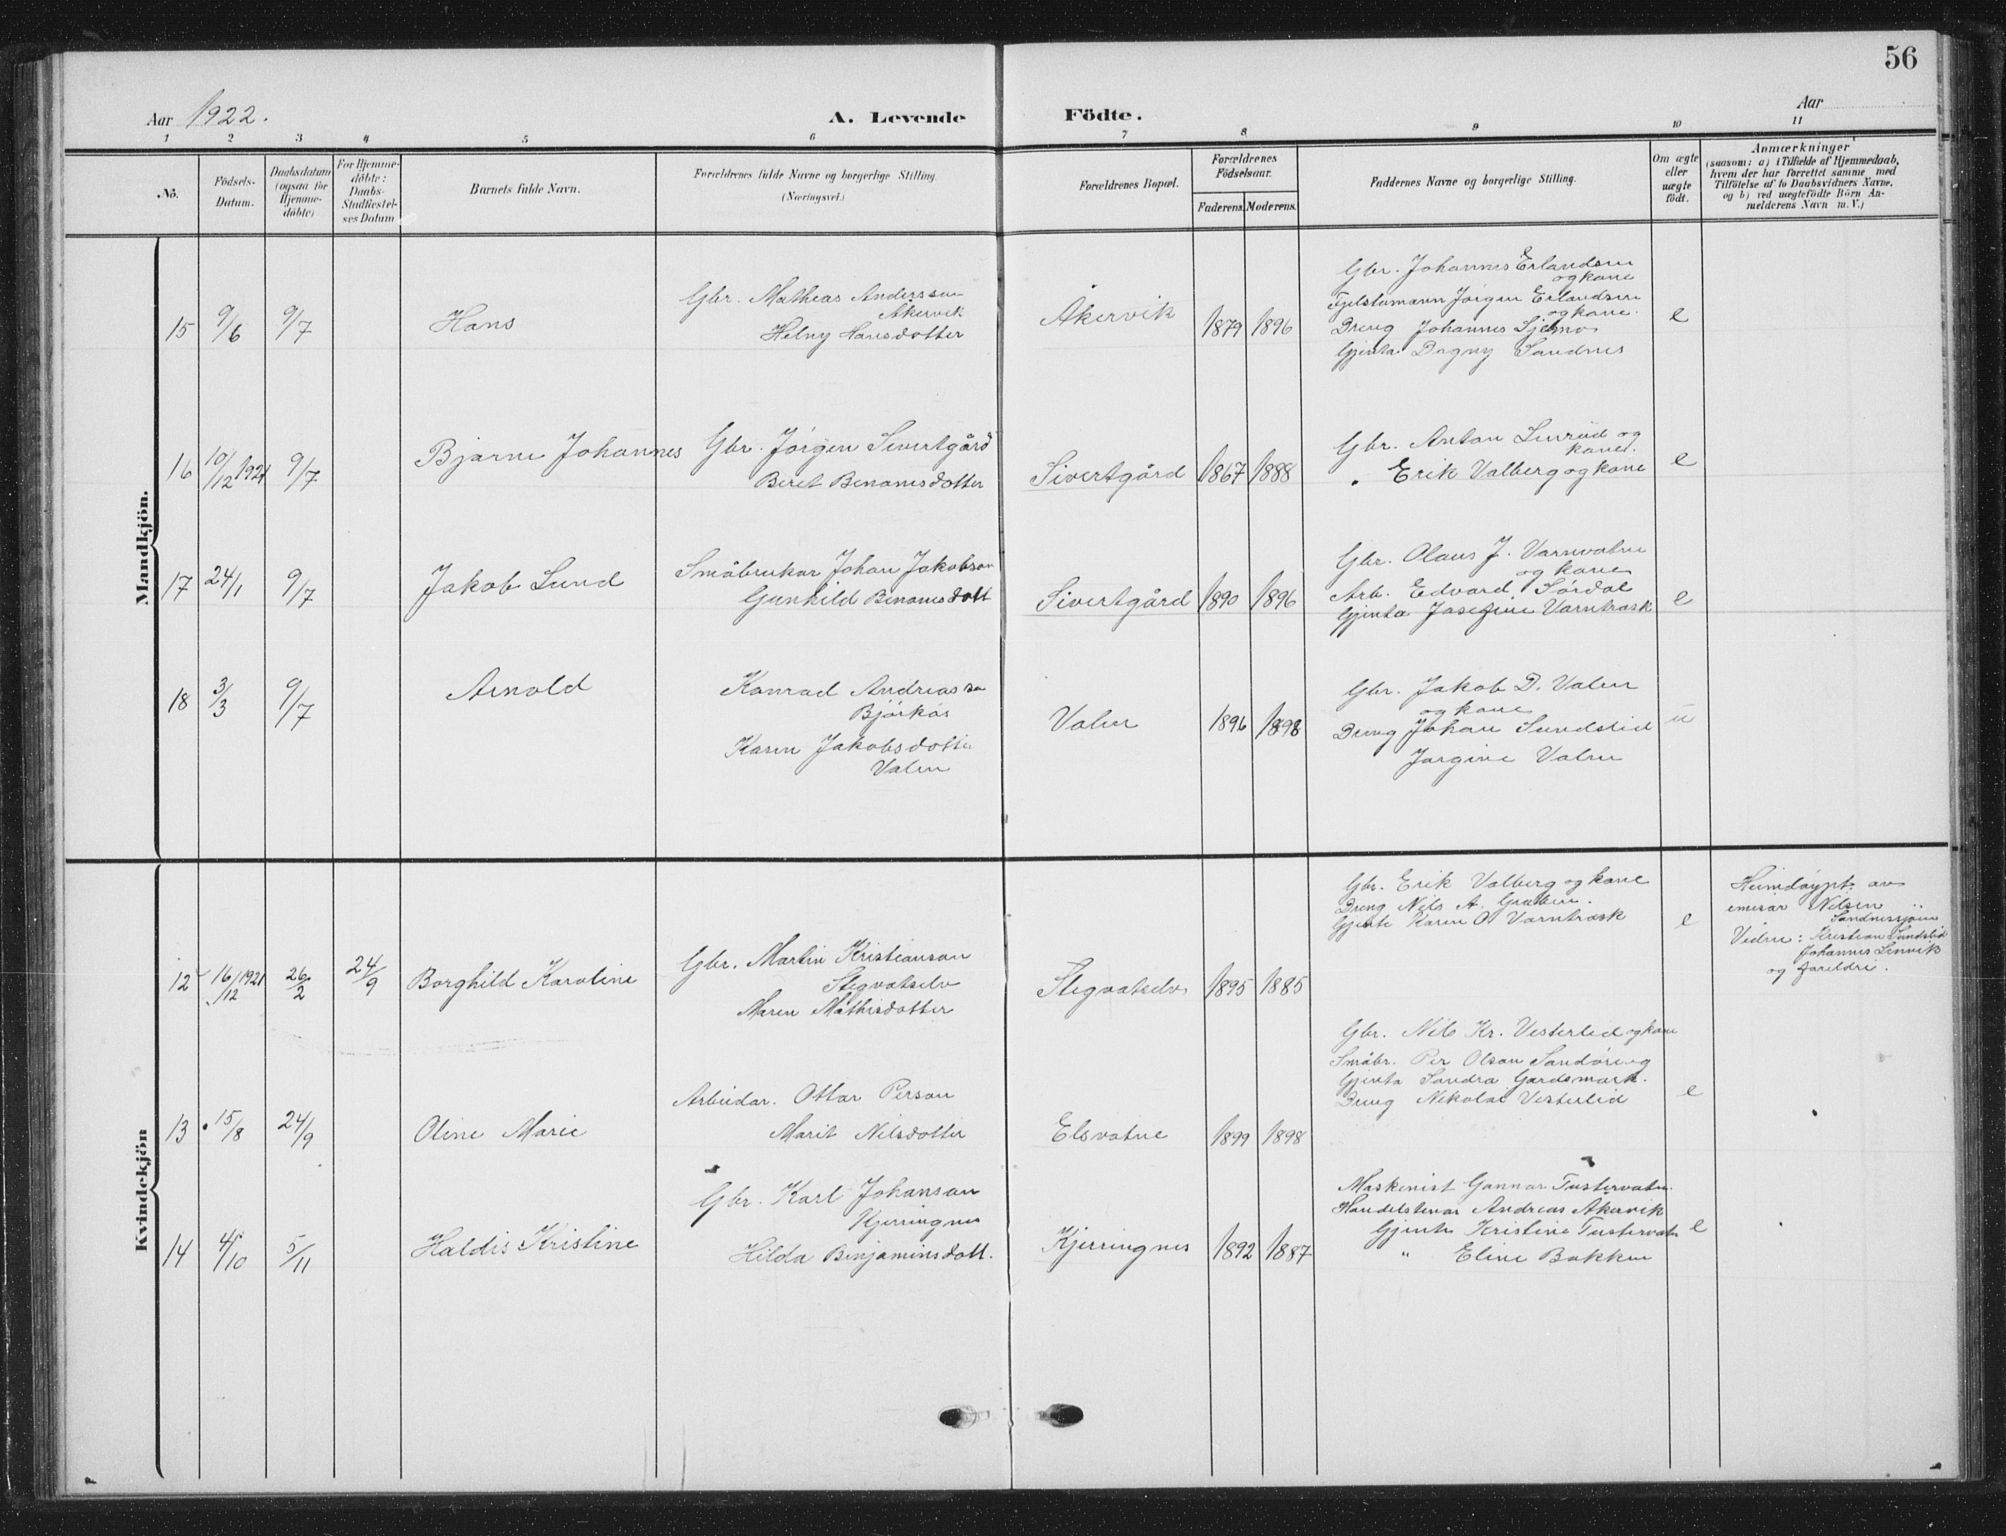 56
Aar 1922.
A. Levende Födte.
Aar
1 2 3 4 5 6 7 8 9 10 11
No.
Födsels-Datum.
Daabsdatum (ogsaa for Hjemme-döbte)
For Hjemme-döbte: Daabs-Stadfæstel-ses Datum
Barnets fulde Navn.
Forældrenes fulde Navne og borgerlige Stilling
(Næringsvei.)
Forældrenes Bopæl.
Forældrenes Födselsaar.
Faderens. Moderens.
Faddernes Navne og borgerlige Stilling.
Om ægte eller uægte födt.
Anmærkninger
(saasom: a) i Tilfælde af Hjemmedaab,
hvem der har forrettet samme, med
Tilföielse af to Daabsvidners Navne,
og b) ved uægtefödte Börn An-
melderens Navn m. V.)
Mandkjön.
15 9/6 9/7 Hans
Gbr. Mathias Anderssen
Åkervik
Helny Hansdotter
Åkervik 1879 1896
Gbr. Johannes Erlandsen
og kone
Fjelstumann Jörgen Erlandsen
og kone.
Dreng Johannes Sjemo
Gjenta Dagny Sandnes
e
16 10/12 1921 9/7 Bjarne Johannes
Gbr. Jörgen Sivertgård
Beret Benonisdotter
Sivertgård 1867 1888
Gbr. Anton Lunröd og
kone.
" Erik Valberg og kone
e
17 24/1 9/7 Jakob Lund
Småbrukar Johan Jakobson
Gunhild Benonisdott
Sivertgård 1890 1896
Gbr. Olaus J. Varnvatne
og kone
Arb. Edvard Sördal
Gjenta Josefine Varntræsk
e
18 3/3 9/7 Arnold
Konrad Andreassn
Björkås
Karen Jakobsdotter
Valen
Valen 1896 1898
Gbr. Jakob D. Valen
og kone
Dreng Johan Sundslid
Jorgine Valen
u
Kvindekjön
12 16/12 1921 26/2 24/9 Borghild Karoline
Gbr. Martin Kristianson
Stegvatselv
Maren Mathisdotter
Stegvatselv 1895 1885
Gbr. Erik Valberg og kone
Dreng Nils A. Gruben.
Gjente Karen O Varntræsk
e
Heimdöypt av
emisær Nilsen
Sandnessjöen
Vidne: Kristian Sundslid
Johannes Lenvik
og foreldre.
13 15/8 24/9 Oline Marie
Arbeidar. Ottar Person
Marit Nilsdotter
Elsvatne 1899 1898
Gbr. Nils Kr. Vesterlid og kone
Småbr. Per Olson Sandöreng
Gjenta Sandra Gardsmark.
Dreng Nikolai Vesterlid
e
14 4/10 5/11 Haldis Kristine
Gbr. Karl Johanson
Kjerringnes
Hilda Benjaminsdott.
Kjerringnes 1892 1887
Maskinist Gunnar Tustervatn.
Handelstenar Andreas Åkervik
Gjente Kristine Tustervatn
" Eline Bakken
e